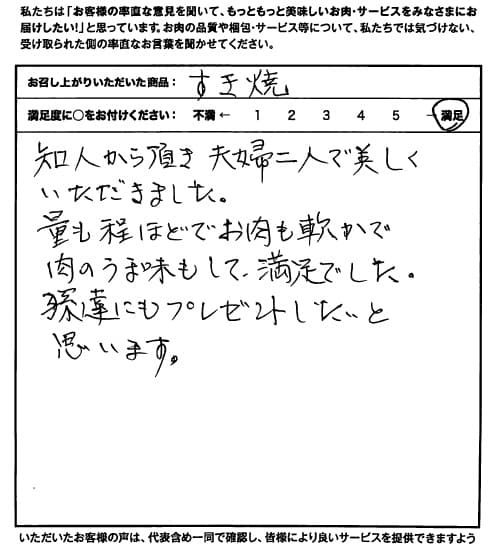 私たちは「お客様の率直な意見を聞いて、もっともっと美味しいお肉・サービスをみなさまにお
届けしたい!」と思っています。お肉の品質や梱包・サービス等について、私たちでは気づけない、
受け取られた側の率直なお言葉を聞かせてください。
お召し上がりいただいた商品： すき焼
満足度に〇をお付けください： 不満 ← 1 2 3 4 5 → 満足
知人から頂き 夫婦二人で美しく
いただきました。
量も程ほどでお肉も軟かで
肉のうま味もして、満足でした。
孫達にもプレゼントしたいと
思います。
いただいたお客様の声は、代表含め一同で確認し、皆様により良いサービスを提供できますよう